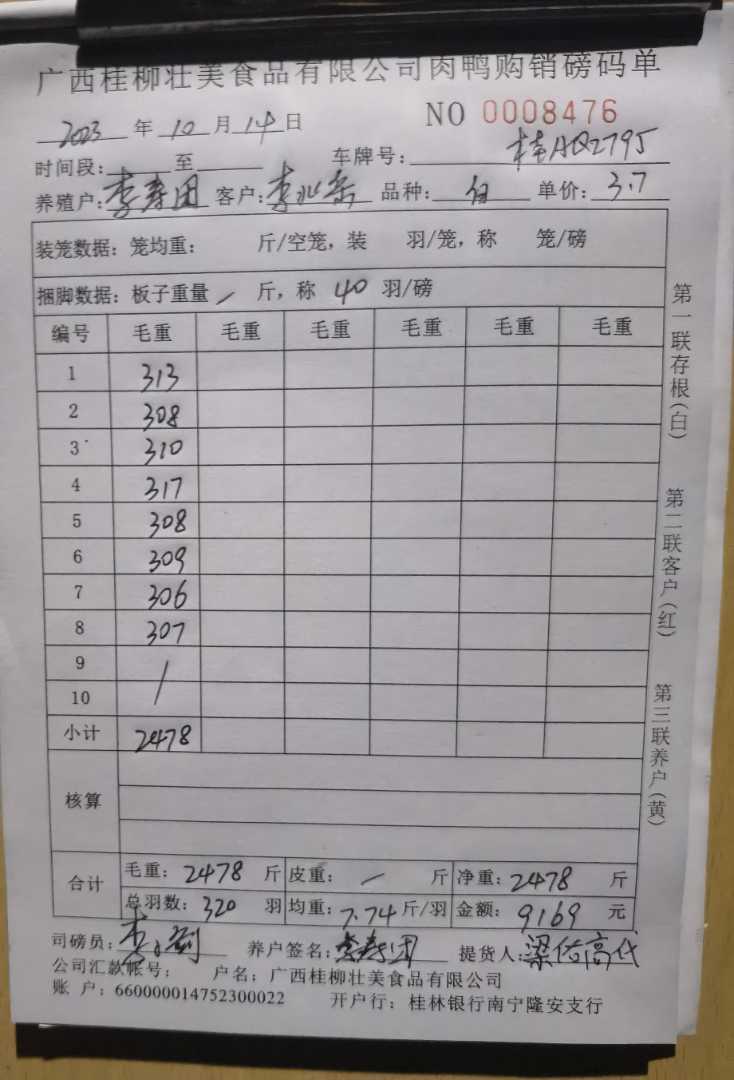 广西桂柳壮美食品有限公司肉鸭购销磅码单
2023 年 10 月 14 日 NO 0008476
时间段: 至 车牌号: 桂AQ2795
养殖户: 李寿团 客户: 李 品种: 白 单价: 3.7
装笼数据: 笼均重: 斤/空笼, 装 羽/笼, 称 笼/磅
捆脚数据: 板子重量 / 斤, 称 40 羽/磅
编号 毛重 毛重 毛重 毛重 毛重 毛重
1 313
2 308
3 310
4 317
5 308
6 309
7 306
8 307
9 /
10
小计 2478
核算
合计 毛重: 2478 斤 皮重: / 斤 净重: 2478 斤
总羽数: 320 羽 均重: 7.74 斤/羽 金额: 9169 元
司磅员: 李 养户签名: 李寿团 提货人: 梁 高代
公司汇款帐号: 户名: 广西桂柳壮美食品有限公司
账 户: 660000014752300022 开户行: 桂林银行南宁隆安支行
第一联存根(白)
第二联客户(红)
第三联养户(黄)